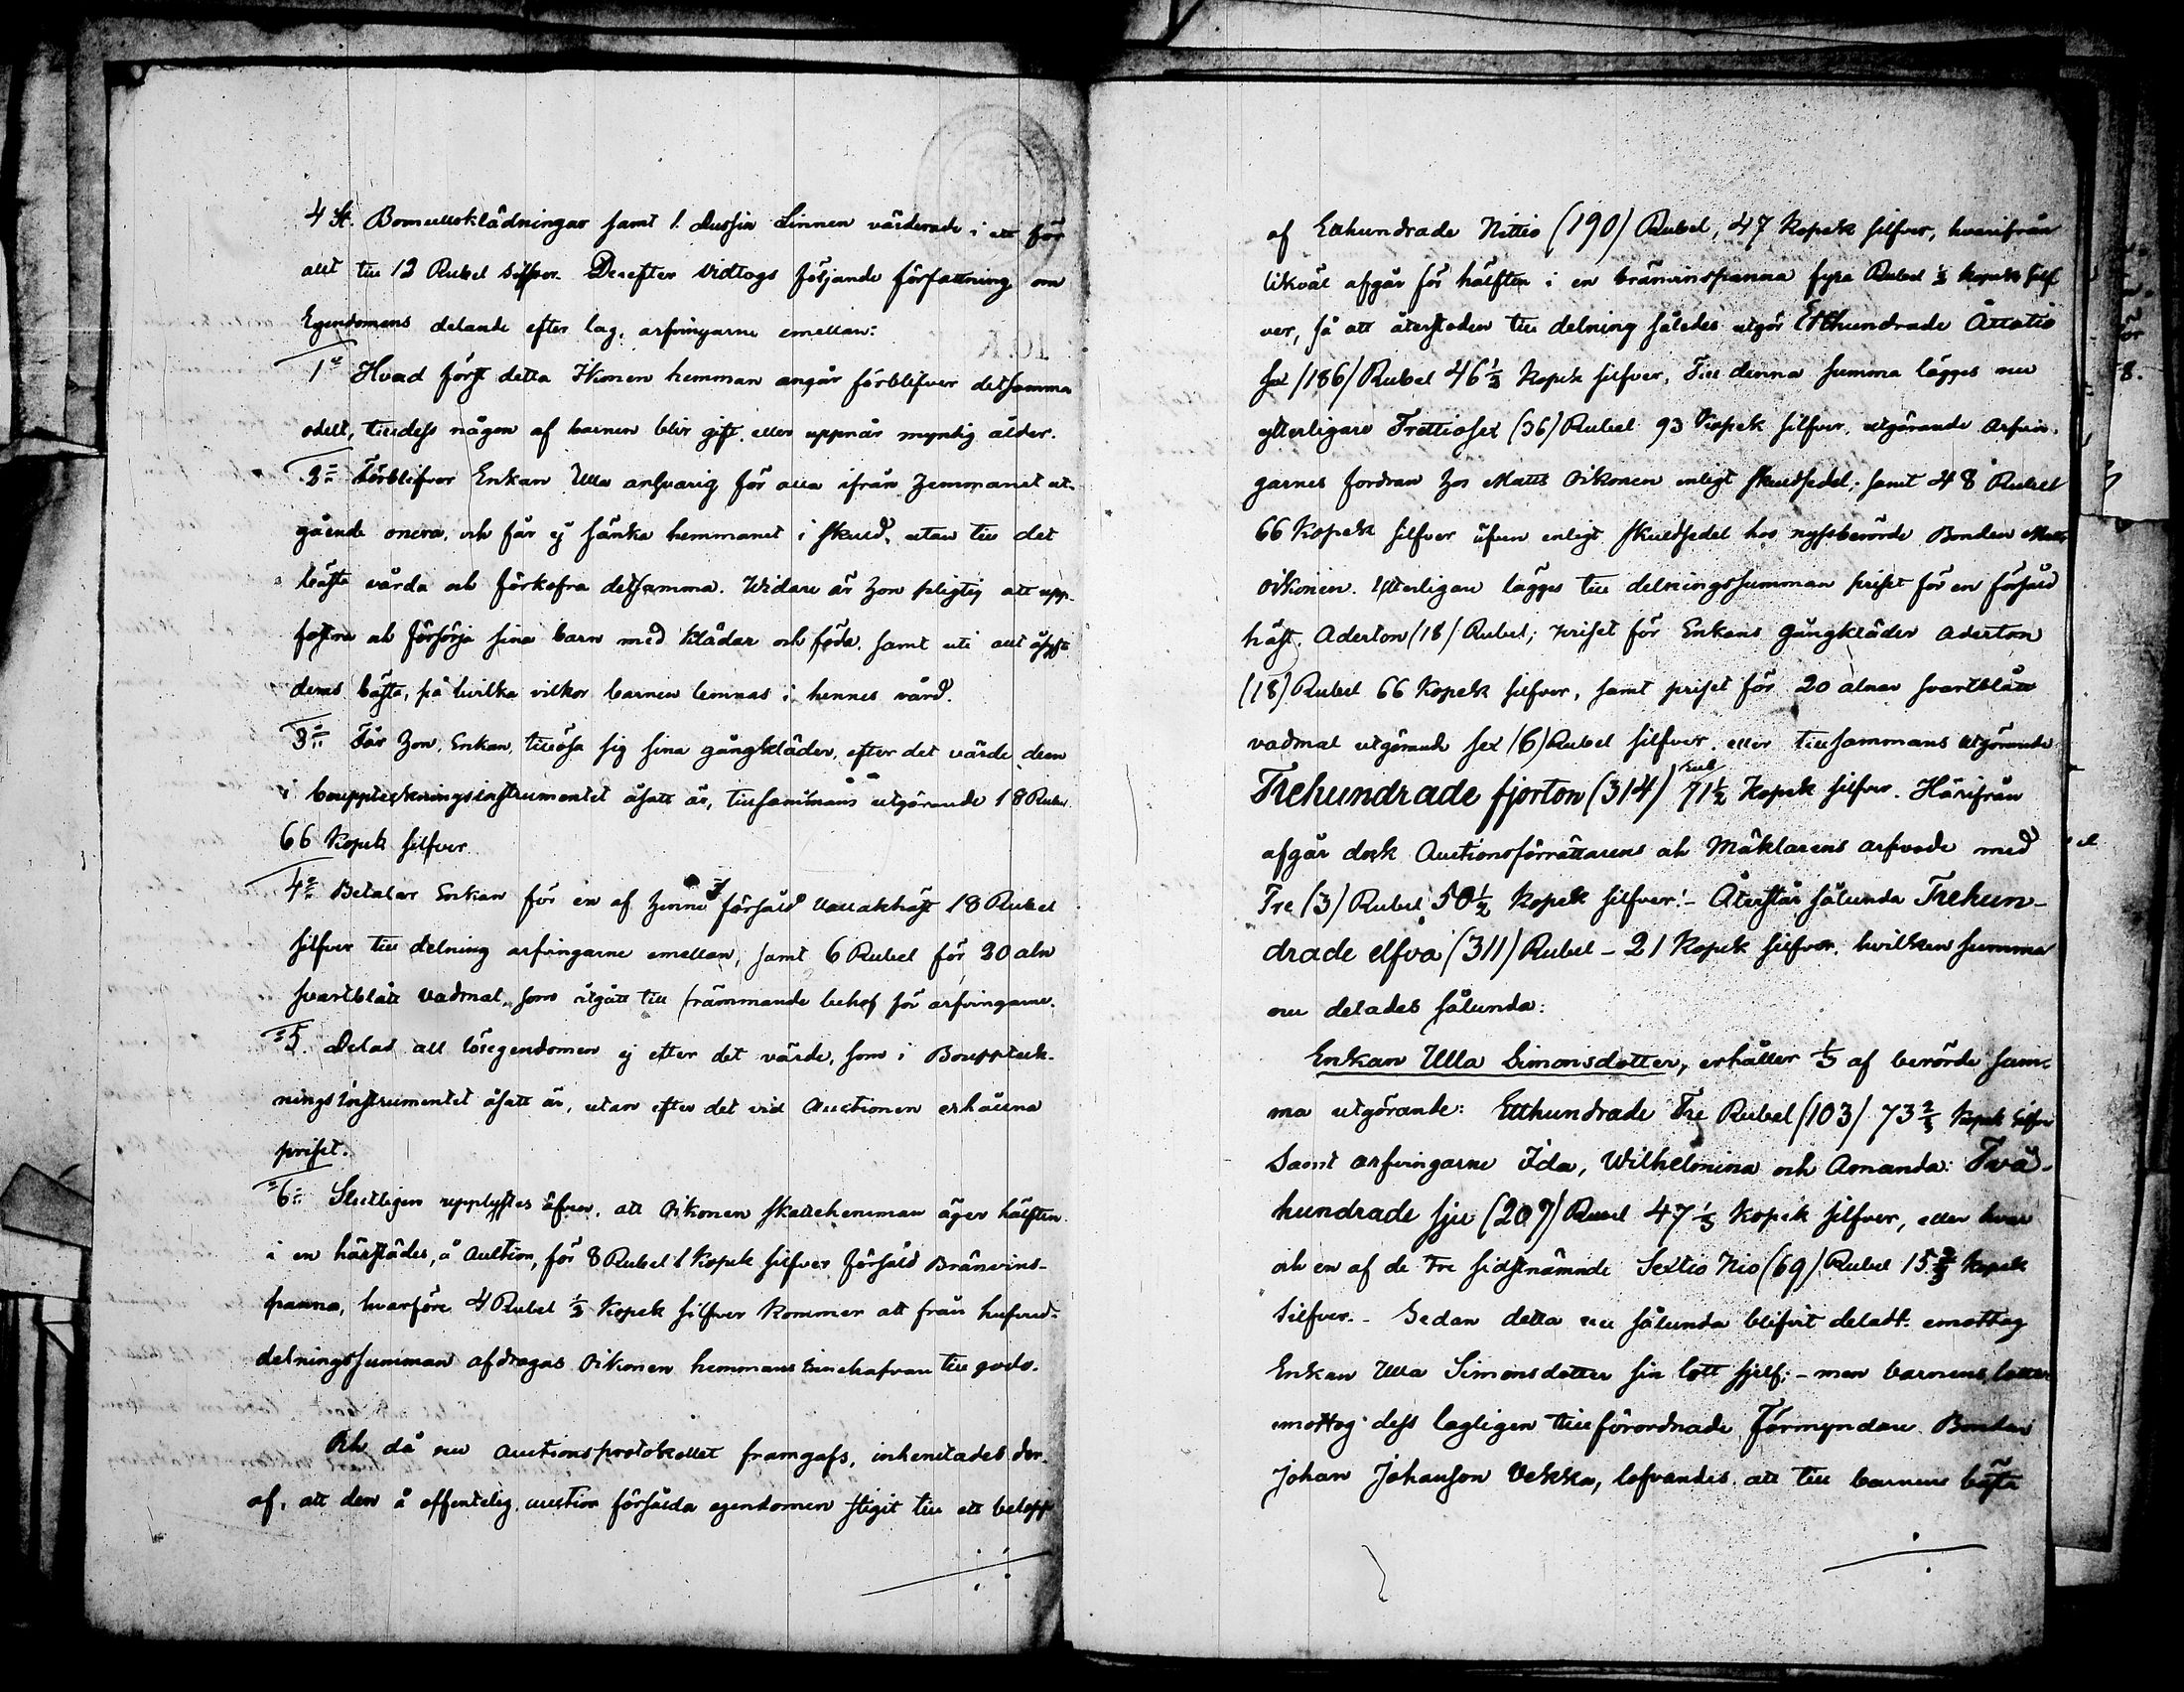 4 St. Bomullsklädningar samt 1. dussin Linnen värderade i ett för
allt till 12 Rubel silfver. Derefter vidtogs följande författning om
Egendomens delande efter lag, arfvingarne emellan:
1o Hvad först detta Oikonen hemman angår förblifver detsamma
odelt, tilldess någon af barnen blir gift eller uppnår myntig ålder.
2o Förblifver Enkan Ulla ansvarig för alla ifrån hemmanet ut-
gående onera, och får ej sänka hemmanet i skuld, utan till det
bästa vårda och förkofra detsamma. Widare är hon pligtig att upp-
fostra och försörja sina barn med kläder och föda, samt uti allt åsyfta
deras bästa, på hvilka vilkor barnen lemnas i hennes vård.
3o Får hon, Enkan, tillösa sig sina gångkläder, efter det värde dem
i bouppteckningsinstrumentet åsatt är, tillsammans utgörande 18 Rubel
66 Kopek silfver.
4o Betalar Enkan för en af henne försåld vallakhäst 18 Rubel
silfver till delning arfvingarne emellan, samt 6 Rubel för 20 aln
svartblått vadmal, som utgått till främmande behof för arfvingarne.
5. Delas all lösegendomen ej efter det värde, som i Bouppteck-
ningsinstrumentet åsatt är, utan efter det vid Auctionen erhållna
priset.
6o Slutligen upplystes äfven, att Oikonen skattehemman äger hälften
i en härstädes, å Auktion, för 8 Rubel 1 Kopek silfver försåld Bränvins-
panna, hvarföre 4 Rubel ½ Kopek silfver kommer att från hufvud-
delningssumman afdragas Oikonen hemmans innehafvare till godo.
Och då nu auctionsprotokollet framgafs, inhemtades der-
af, att den å offentelig auction försålda egendomen stigit till ett belopp
af Etthundrade Nittio (190) Rubel, 47 Kopek silfver, hvarifrån
likväl afgår för hälften i en bränvinspanna fyra Rubel ½ kopek silf
ver, så att återstoden till delning således utgör Etthundrade Åttatio
sex (186) Rubel 46½ Kopek silfver. Till denna summa lägges nu
ytterligare Trettiosex (36) Rubel 93 Kopek silfver, utgörande Arfvin-
garnes fordran hos Matts Oikonen enligt skuldsedel; samt 48 Rubel
66 Kopek silfver äfven enligt skuldsedel hos nyssberörde Bonden Matts
Oikonen. Ytterligare lägges till delningssumman priset för en försåld
häst. Aderton (18) Rubel; priset för Enkans gångkläder aderton
(18) Rubel 66 Kopek silfver, samt priset för 20 alnar svartblått
vadmal utgörande sex (6) Rubel silfver, eller tillsammans utgörande
Trehundrade fjorton (314) rub 71½ Kopek silfver. Härifrån
afgår dock Auctionsförrättarens och Mäklarens arfvode med
Tre (3) Rubel 50½ Kopek silfver! - Återstår sålunda Trehun-
drade elfva (311) Rubel - 21 Kopek silfver. hvilken summa
nu delades sålunda:
Enkan Ulla Simonsdotter, erhåller ⅓ af berörde sum-
ma utgörande: Etthundrade Tre Rubel (103) 73⅔ Kopek silfver
Samt arfvingarne Ida, Wilhelmina och Amanda: Två-
hundrade sju (207) Rubel 47⅓ Kopek silfver, eller hvar
och en af de tre sidstnämnde Sextio Nio (69) Rubel 15⅞ Kopek
silfver. - Sedan detta nu sålunda blifvit deladt. emottog
Enkan Ulla Simonsdotter sin lott sjelf; - men barnens lotter
emottog dess lagligen tillförordnade Förmyndare Bonden
Johan Johansson Vekka, lofvandes att till barnens bästa